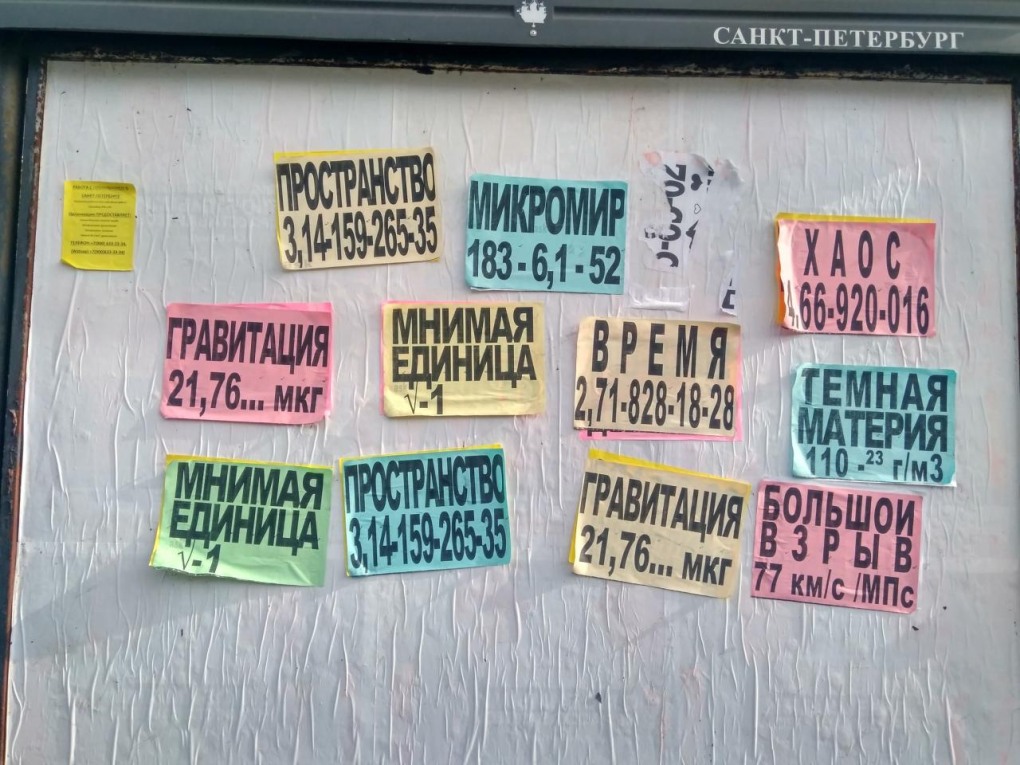 САНКТ-ПЕТЕРБУРГ
ПРОСТРАНСТВО
3,14-159-265-35
МИКРОМИР
183 - 6,1 - 52
ХАОС
4,66-920-016
ГРАВИТАЦИЯ
21,76... мкг
МНИМАЯ
ЕДИНИЦА
√-1
ВРЕМЯ
2,71-828-18-28
ТЕМНАЯ
МАТЕРИЯ
110 -23 г/м3
МНИМАЯ
ЕДИНИЦА
√-1
ПРОСТРАНСТВО
3,14-159-265-35
ГРАВИТАЦИЯ
21,76... мкг
БОЛЬШОЙ
ВЗРЫВ
77 км/с /МПс